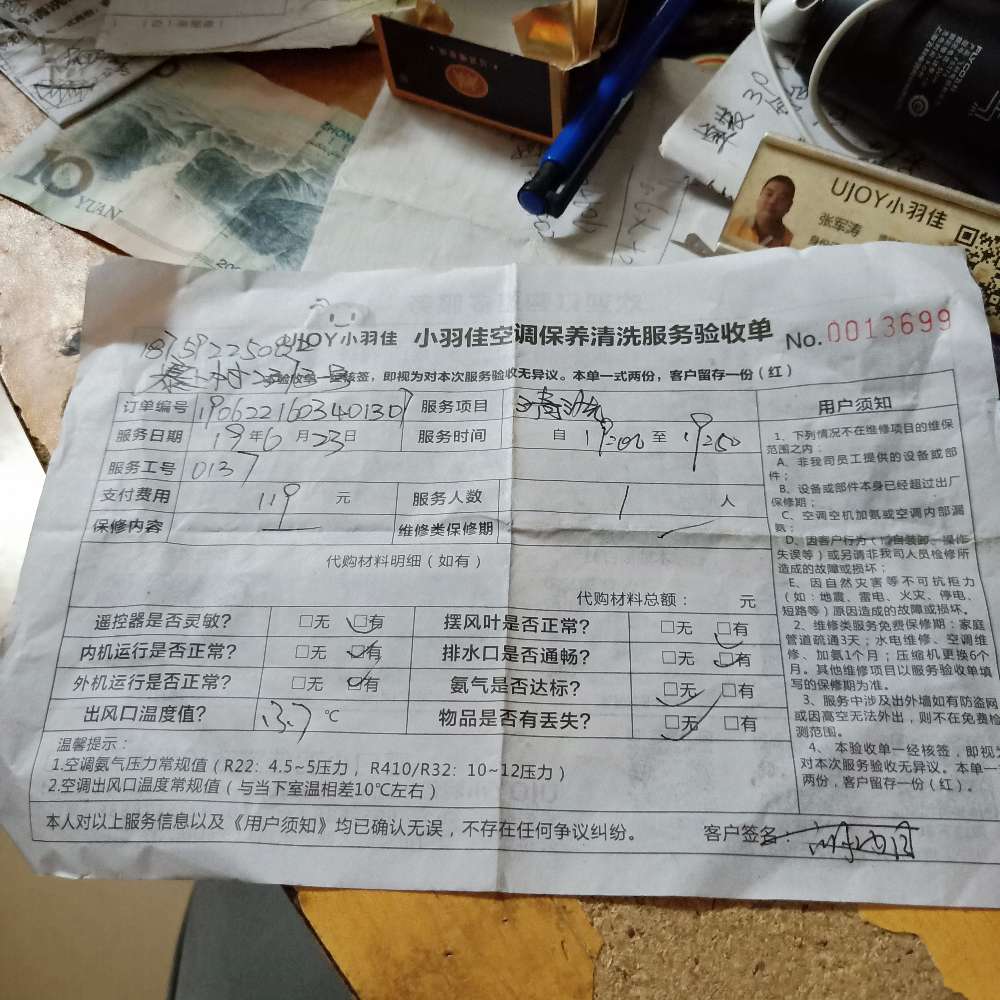 10
YUAN
ZHONG
UJOY小羽佳
张军涛
UJOY小羽佳 小羽佳空调保养清洗服务验收单 No.0013699
本验收单一经核签，即视为对本次服务验收无异议。本单一式两份，客户留存一份（红）
订单编号 190622160340130 服务项目
服务日期 19年6月23日 服务时间 自 19:00 至 19:50
服务工号 0137
支付费用 119 元 服务人数 1 人
保修内容 维修类保修期
代购材料明细（如有）
代购材料总额： 元
遥控器是否灵敏？ □无 □有 摆风叶是否正常？ □无 □有
内机运行是否正常？ □无 □有 排水口是否通畅？ □无 □有
外机运行是否正常？ □无 □有 氨气是否达标？ □无 □有
出风口温度值？ 13.7 ℃ 物品是否有丢失？ □无 □有
温馨提示：
1.空调氨气压力常规值（R22：4.5~5压力，R410/R32：10~12压力）
2.空调出风口温度常规值（与当下室温相差10℃左右）
本人对以上服务信息以及《用户须知》均已确认无误，不存在任何争议纠纷。 客户签名：
用户须知
1、下列情况不在维修项目的维保
范围之内：
A、非我司员工提供的设备或部
件；
B、设备或部件本身已经超过出厂
保修期；
C、空调空机加氨或空调内部漏
氨；
D、因客户行为（擅自装卸、操作
失误等）或另请非我司人员检修所
造成的故障或损坏；
E、因自然灾害等不可抗拒力
（如：地震、雷电、火灾、停电、
短路等）原因造成的故障或损坏。
2、维修类服务免费保修期：家庭
管道疏通3天；水电维修、空调维
修、加氨1个月；压缩机更换6个
月。其他维修项目以服务验收单填
写的保修期为准。
3、服务中涉及出外墙如有防盗网
或因高空无法外出，则不在免费检
测范围。
4、本验收单一经核签，即视为
对本次服务验收无异议。本单一式
两份，客户留存一份（红）。